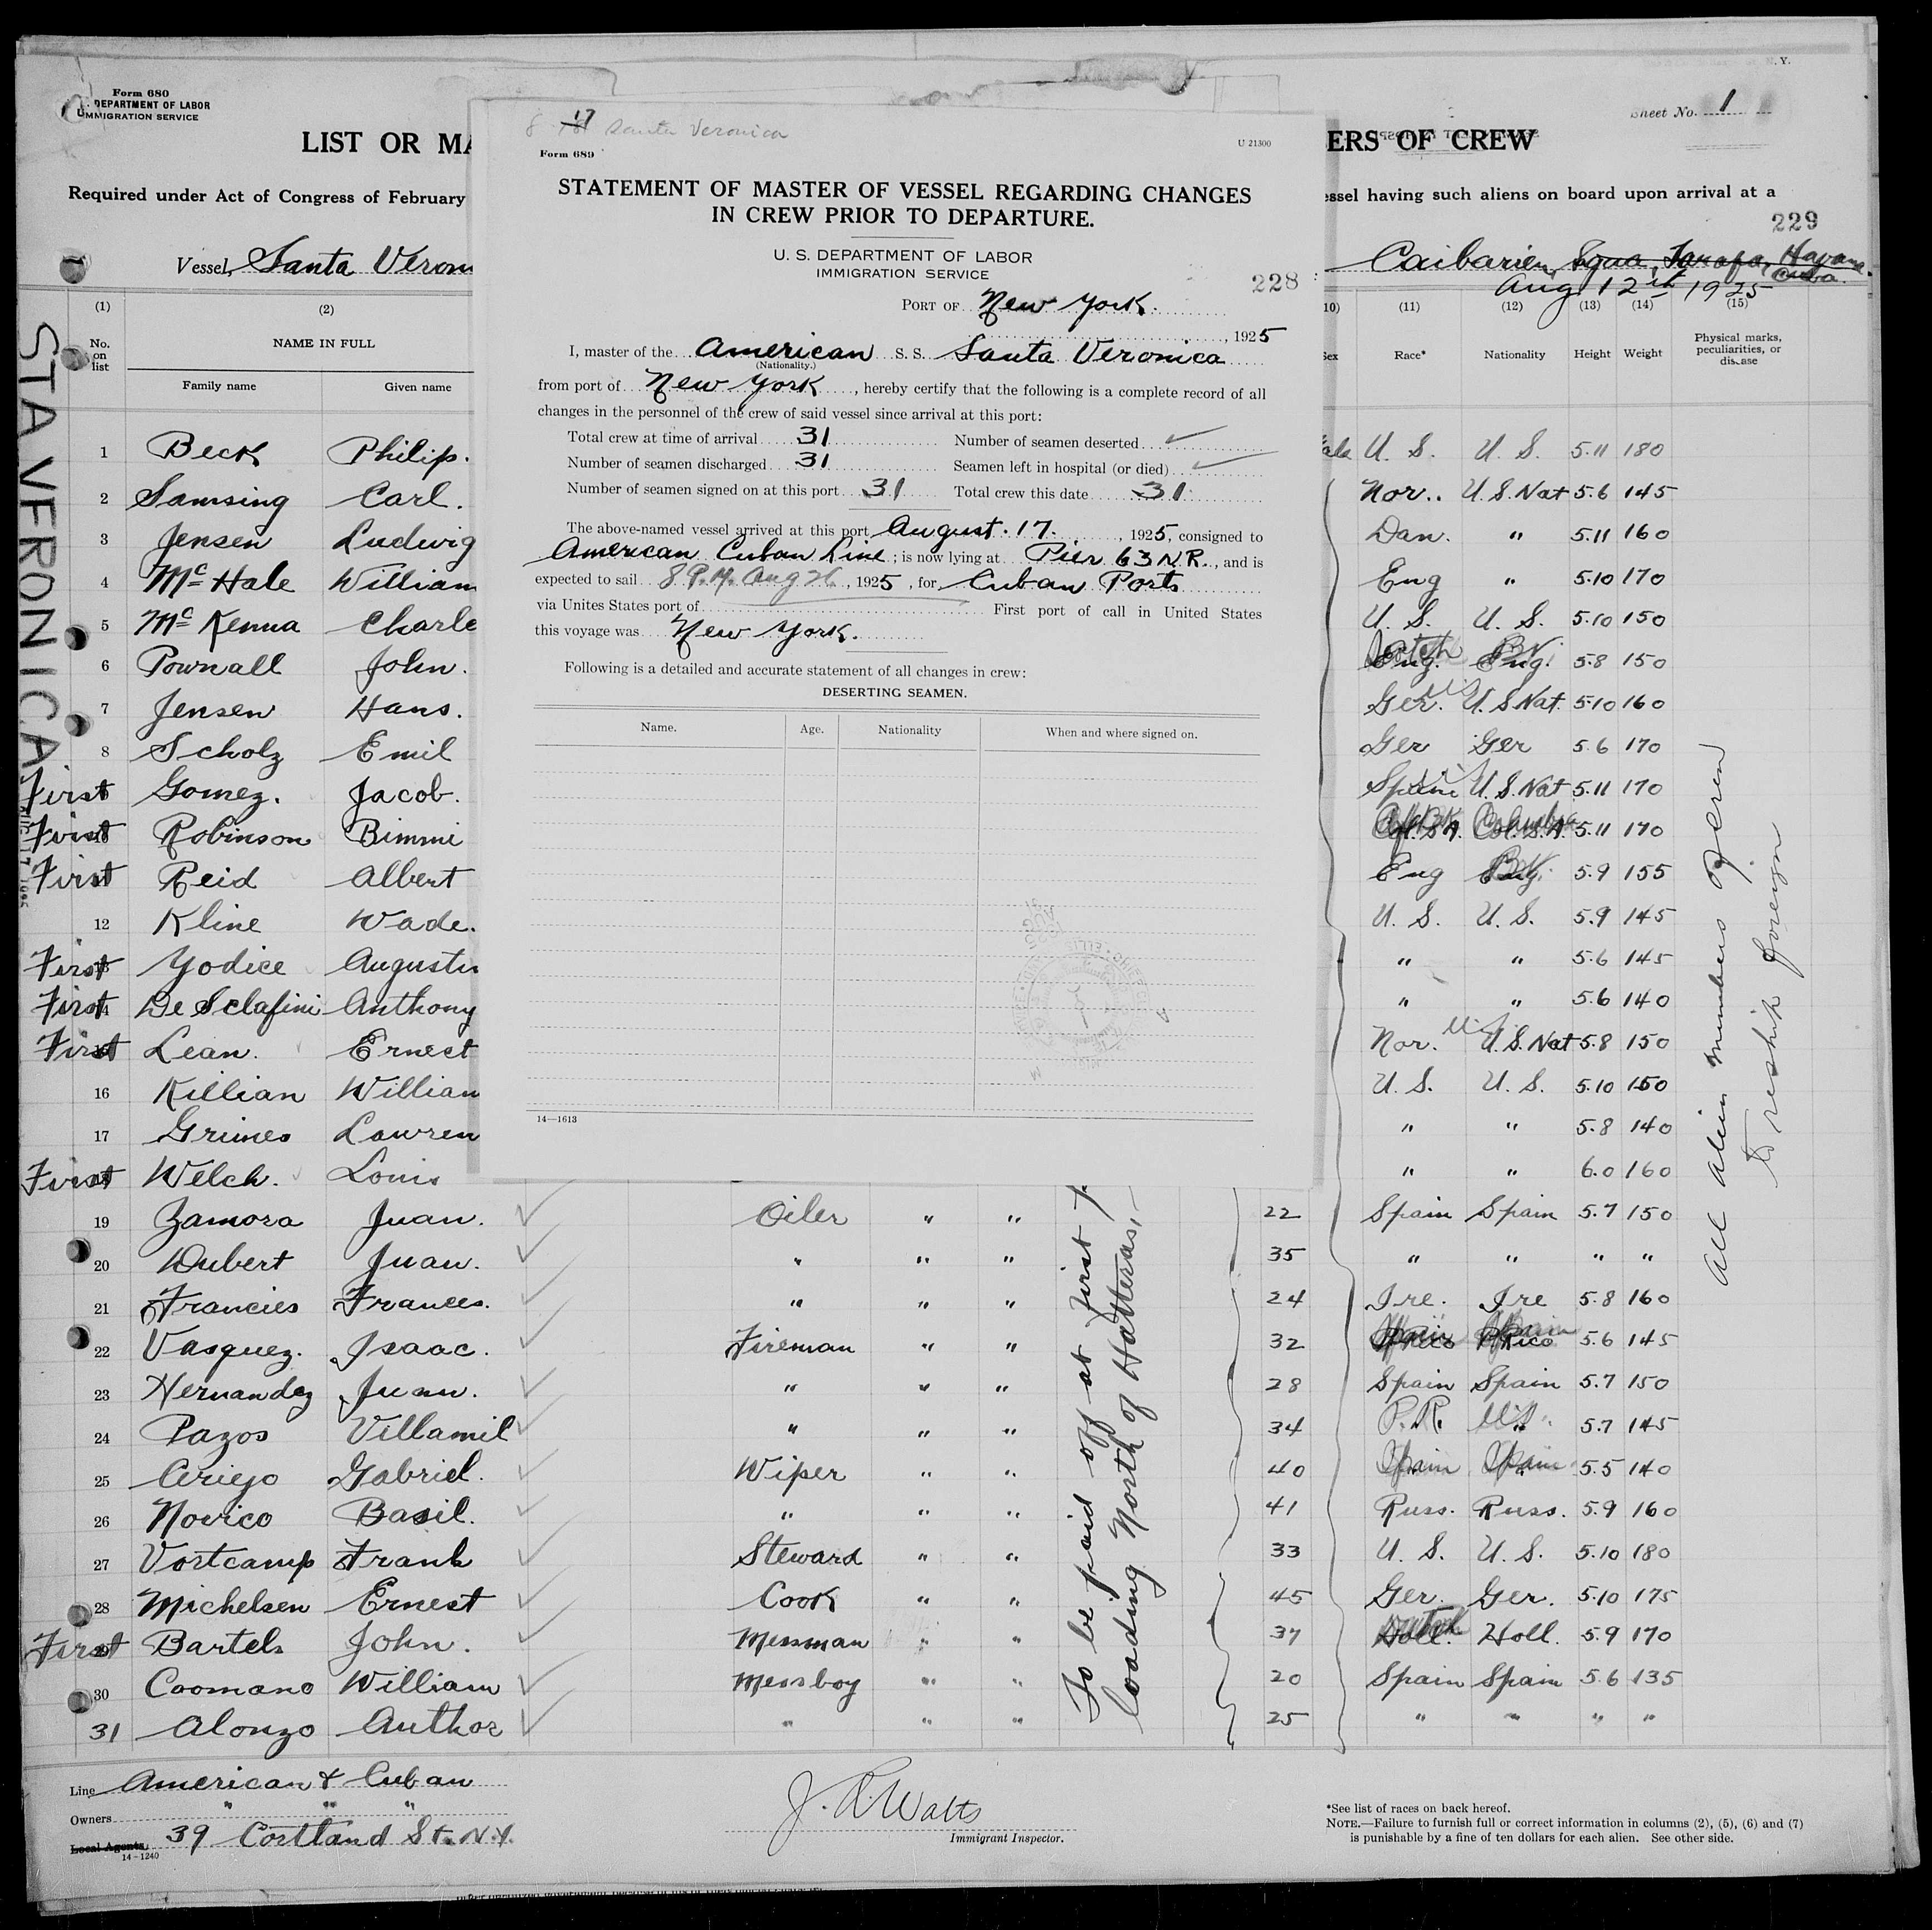 Form 680
U. S. DEPARTMENT OF LABOR
IMMIGRATION SERVICE
Sheet No. 1
LIST OR MA
ERS OF CREW
Required under Act of Congress of February
essel having such aliens on board upon arrival at a
229
Vessel, Santa Veron
Caibarien, Squa, Tarafa, Havana. Cuba.
Aug 12th 1925
STA VERONICA
8 17 Santa Veronica
Form 689
U 21300
STATEMENT OF MASTER OF VESSEL REGARDING CHANGES
IN CREW PRIOR TO DEPARTURE.
U. S. DEPARTMENT OF LABOR
IMMIGRATION SERVICE
228
PORT OF New York.
, 1925
I, master of the American S. S. Santa Veronica
(Nationality.)
from port of New York, hereby certify that the following is a complete record of all
changes in the personnel of the crew of said vessel since arrival at this port:
Total crew at time of arrival 31 Number of seamen deserted ✓
Number of seamen discharged 31 Seamen left in hospital (or died) ✓
Number of seamen signed on at this port 31 Total crew this date 31
The above-named vessel arrived at this port August. 17., 1925, consigned to
American Cuban Line; is now lying at Pier 63 N.R., and is
expected to sail 8 P.M. Aug 26, 1925, for Cuban Ports
via Unites States port of First port of call in United States
this voyage was New York.
Following is a detailed and accurate statement of all changes in crew:
DESERTING SEAMEN.
Name. Age. Nationality When and where signed on.
14—1613
(1) (2) 10) (11) (12) (13) (14) (15)
No. on list NAME IN FULL Sex Race* Nationality Height Weight Physical marks, peculiarities, or disease
Family name Given name
1 Beck Philip. ale U. S. U. S. 5.11 180
2 Samsing Carl. Nor.. U.S. Nat 5.6 145
3 Jensen Ludwig Dan. " 5.11 160
4 McHale William Eng " 5.10 170
5 McKenna Charle U. S. U. S. 5.10 150
6 Pownall John. Scotch Eng. Eng. 5.8 150
7 Jensen Hans. Ger. U.S. Nat. 5.10 160
8 Scholz Emil Ger Ger 5.6 170
First Gomez. Jacob. Spain U.S. Nat 5.11 170
First Robinson Bimmi 5.11 170
First Reid Albert Eng Eng. 5.9 155
12 Kline Wade. U. S. U. S. 5.9 145
First Yodice Augustin " " 5.6 145
First De Sclafini Anthony " " 5.6 140
First Lean. Ernest Nor. U.S. Nat 5.8 150
16 Killian William U. S. U. S. 5.10 150
17 Grimes Lawren " " 5.8 140
First Welch. Louis " " 6.0 160
19 Zamora Juan. ✓ Oiler " " 22 Spain Spain 5.7 150
20 Dubert Juan. ✓ " " " 35 " " " "
21 Francies Frances. ✓ " " " 24 Ire. Ire 5.8 160
22 Vasquez. Isaac. ✓ Fireman " " 32 P Rico P Rico 5.6 145
23 Hernandez Juan. ✓ " " " 28 Spain Spain 5.7 150
24 Pazos Villamil ✓ " " " 34 P.R. U.S. 5.7 145
25 Ceriejo Gabriel. ✓ Wiper " " 40 Spain Spain 5.5 140
26 Novico Basil. ✓ " " " 41 Russ. Russ. 5.9 160
27 Vortcamp Frank ✓ Steward " " 33 U. S. U. S. 5.10 180
28 Michelsen Ernest ✓ Cook " " 45 Ger. Ger. 5.10 175
First Bartels John. ✓ Messman " " 37 Dutch Holl. Holl. 5.9 170
30 Coomano William ✓ Messboy " " 20 Spain Spain 5.6 135
31 Alonzo Author ✓ " " " 25 " " " "
To be paid off at first
loading North of Hatteras,
All alien members of crew
to reship foreign
Line American & Cuban
Owners " " "
Local Agents 39 Cortland St. N.Y.
14-1240
J. R. Watts
Immigrant Inspector.
*See list of races on back hereof.
NOTE.—Failure to furnish full or correct information in columns (2), (5), (6) and (7)
is punishable by a fine of ten dollars for each alien. See other side.